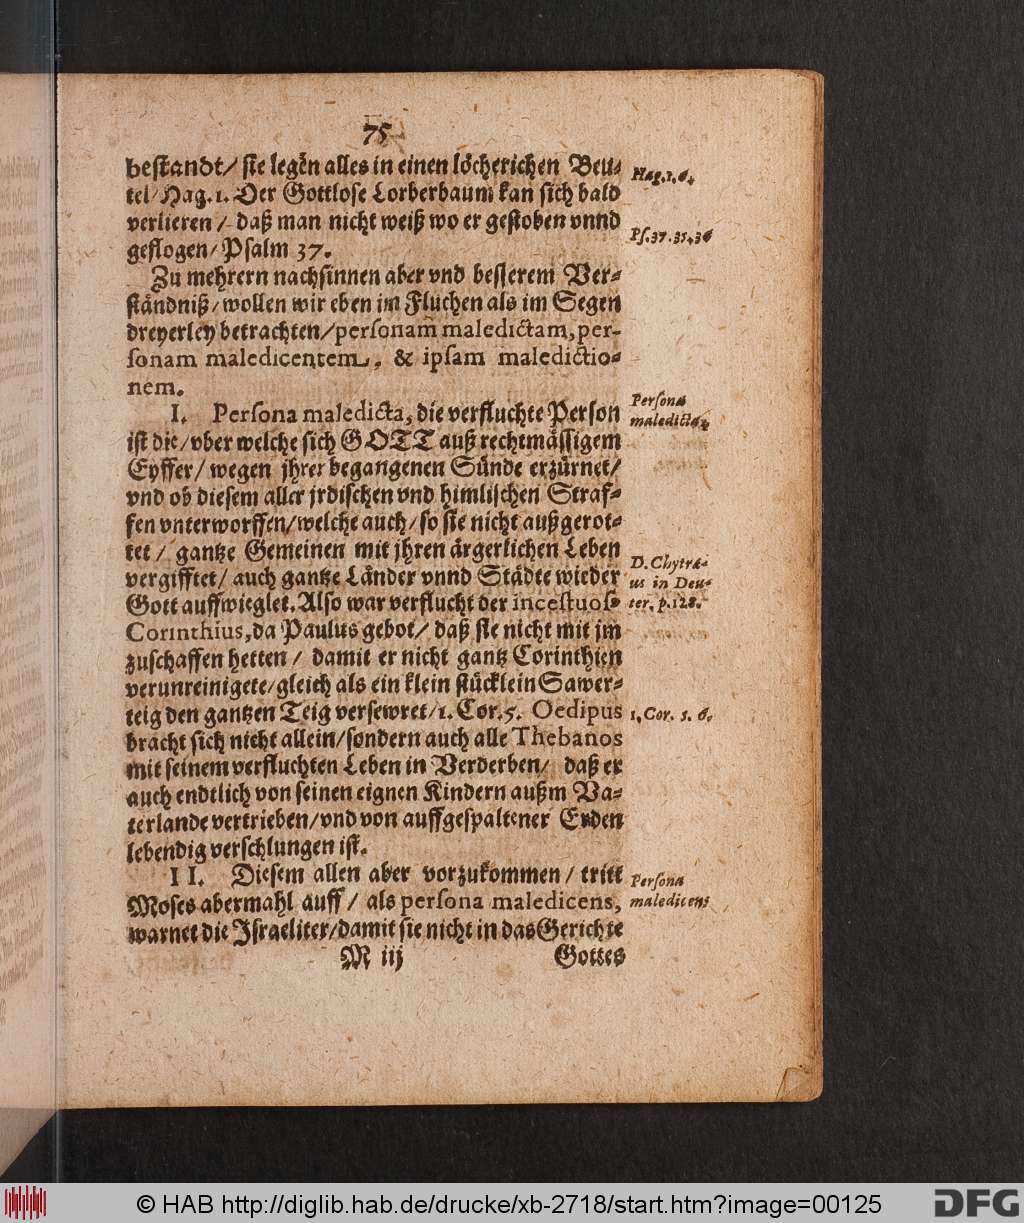 75
bestandt/ sie legẽn alles in einen löcherichen Beu-
tel/Hag.1. Der Gottlose Lorberbaum kan sich bald
verlieren / daß man nicht weiß wo er gestoben vnnd
geflogen/Psalm 37.
Hag.1.6.
Ps.37.35.36
Zu mehrern nachsinnen aber vnd besserem Ver-
ständniß/wollen wir eben im Fluchen als im Segen
dreyerley betrachten/personam maledictam,per-
sonam maledicentem, & ipsam maledictio-
nem.
I. Persona maledicta, die verfluchte Person
ist die/vber welche sich GOTT auß rechtmässigem
Eyffer/ wegen jhrer begangenen Sünde erzürnet/
vnd ob diesem aller jrdischen vnd himlischen Straf-
fen vnterworffen/welche auch/so sie nicht außgerot-
tet / gantze Gemeinen mit jhren ärgerlichen Leben
vergifftet/ auch gantze Länder vnnd Städte wieder
Gott auffwieglet. Also war verflucht der incestuos-
Corinthius,da Paulus gebot/ daß sie nicht mit jm
zuschaffen hetten / damit er nicht gantz Corinthien
verunreinigete/gleich als ein klein stücklein Sawer-
teig den gantzen Teig versewret/1. Cor.5. Oedipus
bracht sich nicht allein/sondern auch alle Thebanos
mit seinem verfluchten Leben in Verderben/ daß er
auch endtlich von seinen eignen Kindern außm Va-
terlande vertrieben/vnd von auffgespaltener Erden
lebendig verschlungen ist.
Persona
maledicta,
D. Chytræ-
us in Deu-
ter. p.128.
1.Cor. 5. 6.
II. Diesem allen aber vorzukommen / tritt
Moses abermahl auff / als persona maledicens,
warnet die Israeliter/damit sie nicht in das Gerichte
Persona
maledicens
M iij Gottes
© HAB http://diglib.hab.de/drucke/xb-2718/start.htm?image=00125
DFG